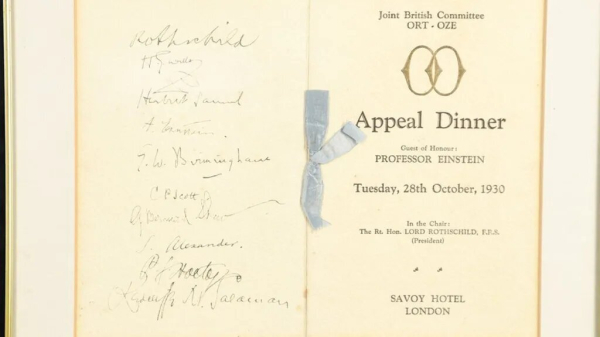 Rothschild
Herbert Samuel
A. Einstein.
E. W. Birmingham
C P Scott
G. Bernard Shaw
S. Alexander.
Joint British Committee
ORT - OZE
Appeal Dinner
Guest of Honour:
PROFESSOR EINSTEIN
Tuesday, 28th October, 1930
In the Chair:
The Rt. Hon. LORD ROTHSCHILD, F.P.S.
(President)
SAVOY HOTEL
LONDON